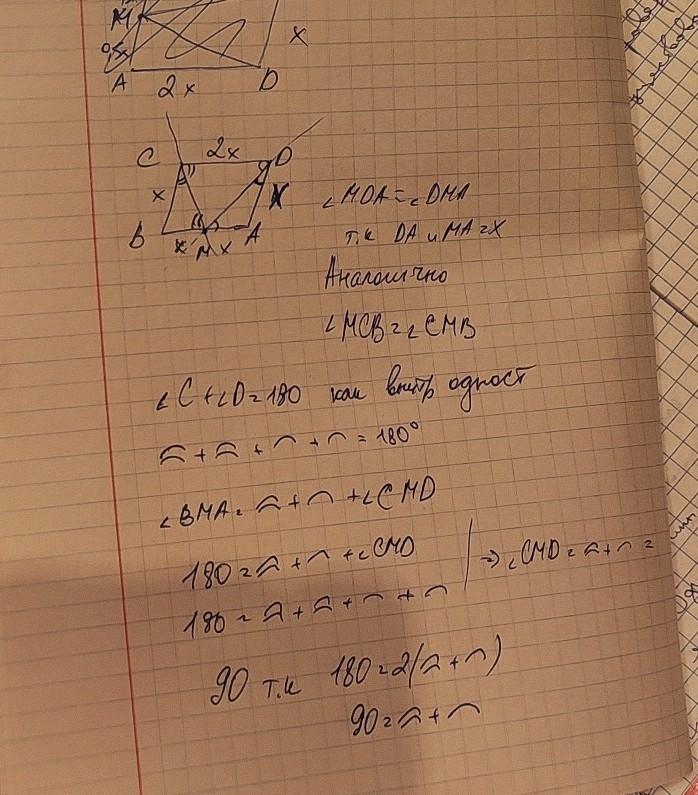 M
x
A 2x D
C 2x D
x x
B x M x A
∠MDA=∠DMA
т.к DA и MA=X
Аналогично
∠MCB=∠CMB
∠C+∠D=180 как внутр одност
⌢̄+⌢̄+⌢+⌢=180°
∠BMA=⌢̄+⌢+∠CMD
180=⌢̄+⌢+∠CMD
⇒∠CMD=⌢̄+⌢=
180=⌢̄+⌢̄+⌢+⌢
90 т.к 180=2(⌢̄+⌢)
90=⌢̄+⌢